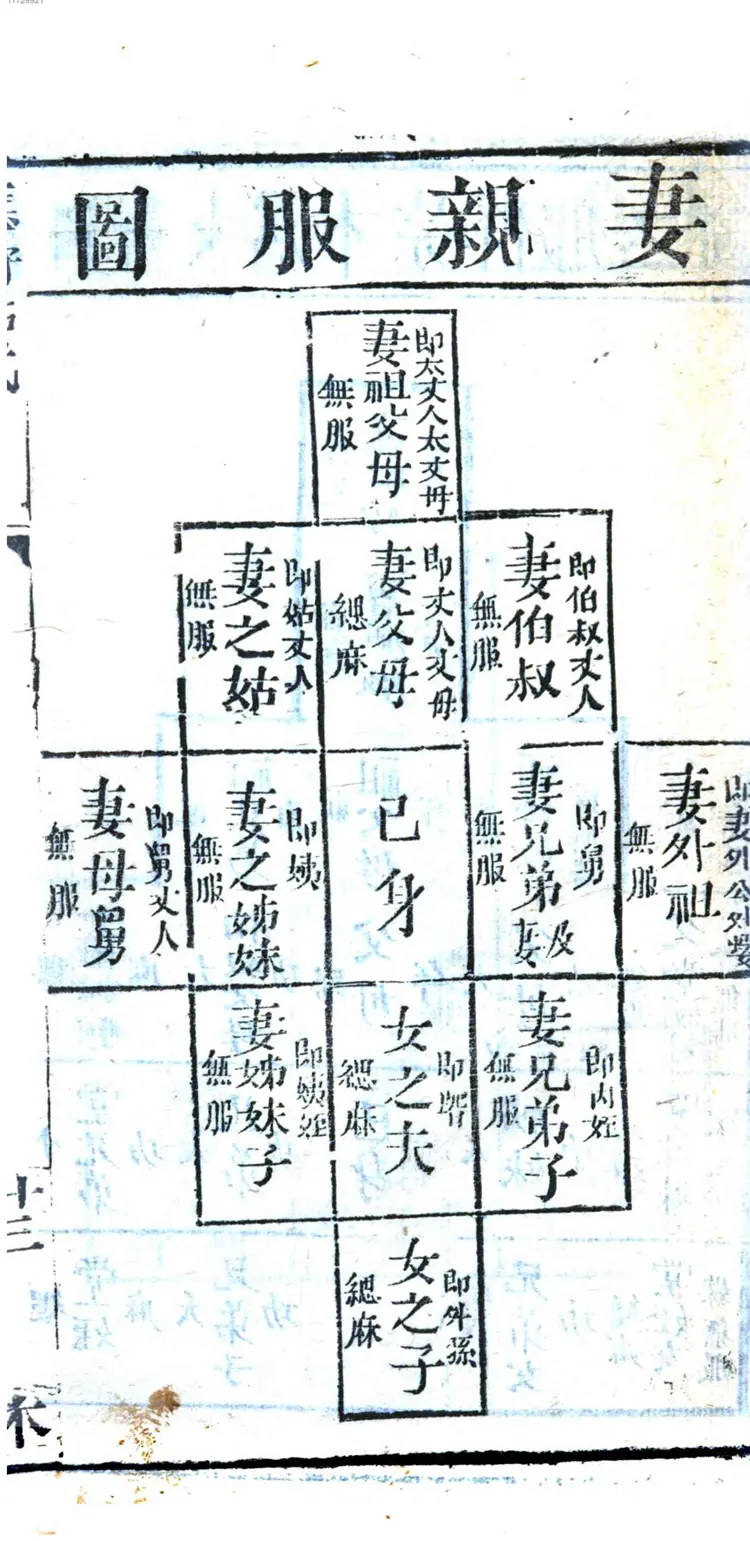 11129921
妻親服圖
即太丈人太丈母
妻祖父母
無服
即伯叔丈人
妻伯叔
無服
即丈人丈母
妻父母
緦麻
即姑丈人
妻之姑
無服
即妻外公外婆
妻外祖
無服
即舅
妻兄弟及妻
無服
己身
即姨
妻之姊妹
無服
即舅丈人
妻母舅
無服
即內姪
妻兄弟子
無服
即壻
女之夫
緦麻
即姨姪
妻姊妹子
無服
即外孫
女之子
緦麻